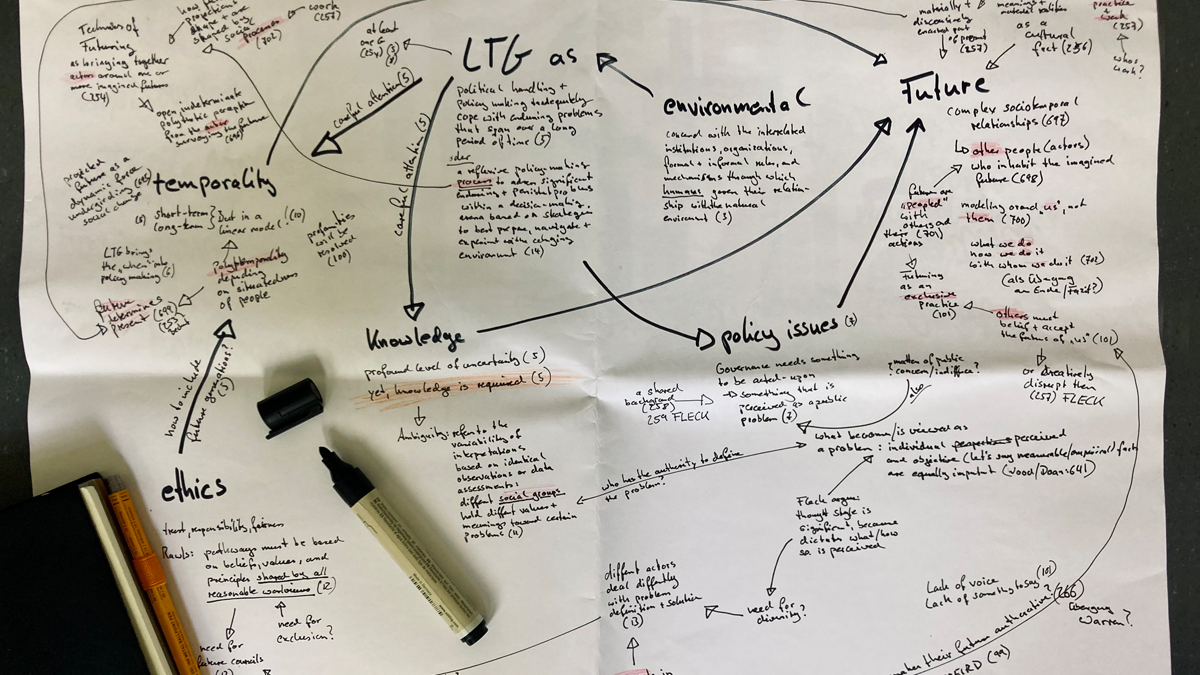 Technikes of
Futuring
as bringing together
actors around one or
more imagined futures
(254)
open indeterminate
polythetic
from the actor
surveying the future
projected
future as a
dynamic force
undergirding
social change
processes
(702)
work
(257)
at least
temporality
(8) short-term}
long-term}
But in a
linear model! (10)
LTG brings
the "when" into
policy making (6)
Polytemporality
depending
on situatedness
of people
future
determines
present
(699)
how to include
future generations?
(5)
ethics
trust, responsibility, fairness
Rawls: pathways must be based
on beliefs, values, and
principles shared by all
reasonable
need for
future councils
need for
exclusion?
LTG as
careful attention (5)
careful attention (5)
political handling +
policy making to adequately
cope with enduring problems
that span over a long
period of time (5)
oder
a reflexive policy-making
process to address significant
enduring + persistent problems
within a decision-making
arena based on strategies
to best prepare, navigate +
experiment with a changing
environment (14)
Knowledge
profound level of uncertainty (5)
yet, knowledge is required (5)
Ambiguity: refers to the
variability of
interpretations
based on identical
observations or data
assessments:
different social groups
hold different values +
meanings toward certain
problems (11)
environmental
concerned with the interrelated
institutions, organizations,
formal + informal rules, and
mechanisms through which
humans govern their relation-
ship with the natural
environment (3)
policy issues (7)
Governance needs something
to be acted-upon
something that is
perceived as a public
problem (7)
a shared
background
(258)
259 FLECK
matter of public
concern/indiffence?
also
what becomes/is viewed as
a problem: individual perceived
and objective (let's say measurable/empirical) facts
are equally important (Wood/Doan: 641)
who has the authority to define
the problem?
Fleck argues:
thought style is
significant, because
dictates what/how
sth. is perceived
need for
diversity?
different actors
deal differently
with problem
definition + solution
(13)
Future
materially +
discursively
enacted part
of present
(257)
meanings +
material realities
as a
cultural
fact (256)
practice
+
work
(257)
whose
work?
complex sociotemporal
relationships (697)
other people (actors)
who inhabit the imagined
future (698)
futures are
"peopled"
with
others and
their
actions
(701)
modeling around "us", not
them (700)
what we do
how we do it
with whom we do it (702)
(als Übergang
an Ende/Fazit?)
Futuring
as an
exclusive
practice
(101)
others must
believe + accept
the future of "us" (101)
or creatively
disrupt them
(257) FLECK
Lack of voice
Lack of something to say (101)
makes their future authoritative?
(266)
Warren?
WEIRD (99)